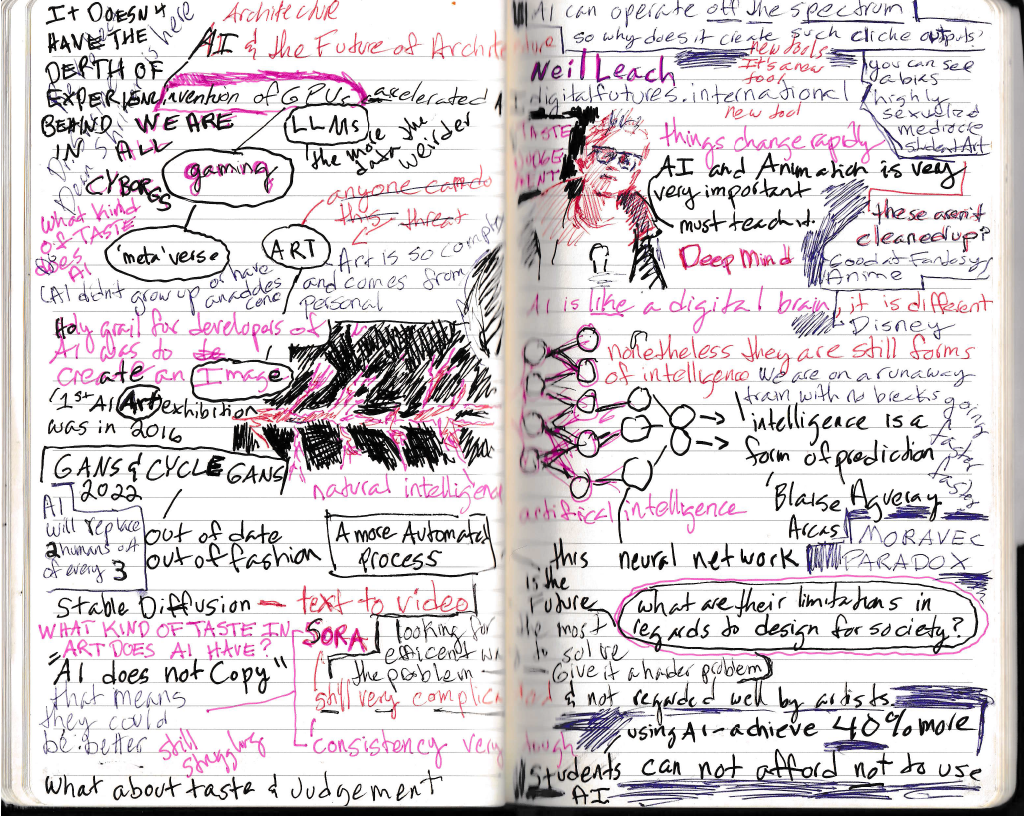 It Doesn't
HAVE THE
DEPTH OF
EXPERIENCE
BEHIND WE ARE
IN ALL
CYBORGS
Architecture
AI & the Future of Archite
invention of GPUs accelerated
LLMs
the more
data the
weirder
gaming
anyone can do
this - threat
'meta' verse
ART
Art is so complex
and comes from
personal
what kind
of TASTE
does
AI
(AI didn't grow up or have
Holy grail for developers of
AI was to be
create an Image
1st AI Art exhibition
was in 2016
GANS & CYCLE GANS
2022
natural intelligence
AI
will replace
2 humans out
of every 3
out of date
out of fashion
A more Automated
process
Stable Diffusion — text to video
SORA
WHAT KIND OF TASTE IN
ART DOES AI HAVE?
looking for
efficent wa
the problem
"AI does not Copy"
that means
they could
be better
still very complicated
still
struggling
consistency very tough
What about taste & Judgement
AI can operate off the spectrum
so why does it create such cliche outputs?
new tools
It's a new
tool
Neil Leach
digitalfutures.international
new tool
you can see
a bias
highly
sexualized
mediocre
student Art
TASTE
JUDGE
MENT
things change rapidly
AI and Animation is very
very important
must teach it.
Deep Mind
these aren't
cleaned up?
Good at Fantasy
Anime
Disney
AI is like a digital brain, it is different
nonetheless they are still forms
of intelligence
We are on a runaway
train with no breaks going
faster
faster
intelligence is a
form of prediction
Blaise Agueray
Arcas
artifical intelligence
MORAVEC
PARADOX
this neural network
is the
Future
the most
to solve
what are their limitations in
regards to design for society?
Give it a harder problem
& not regarded well by artists
using AI - achieve 40% more
Students can not afford not to use
AI